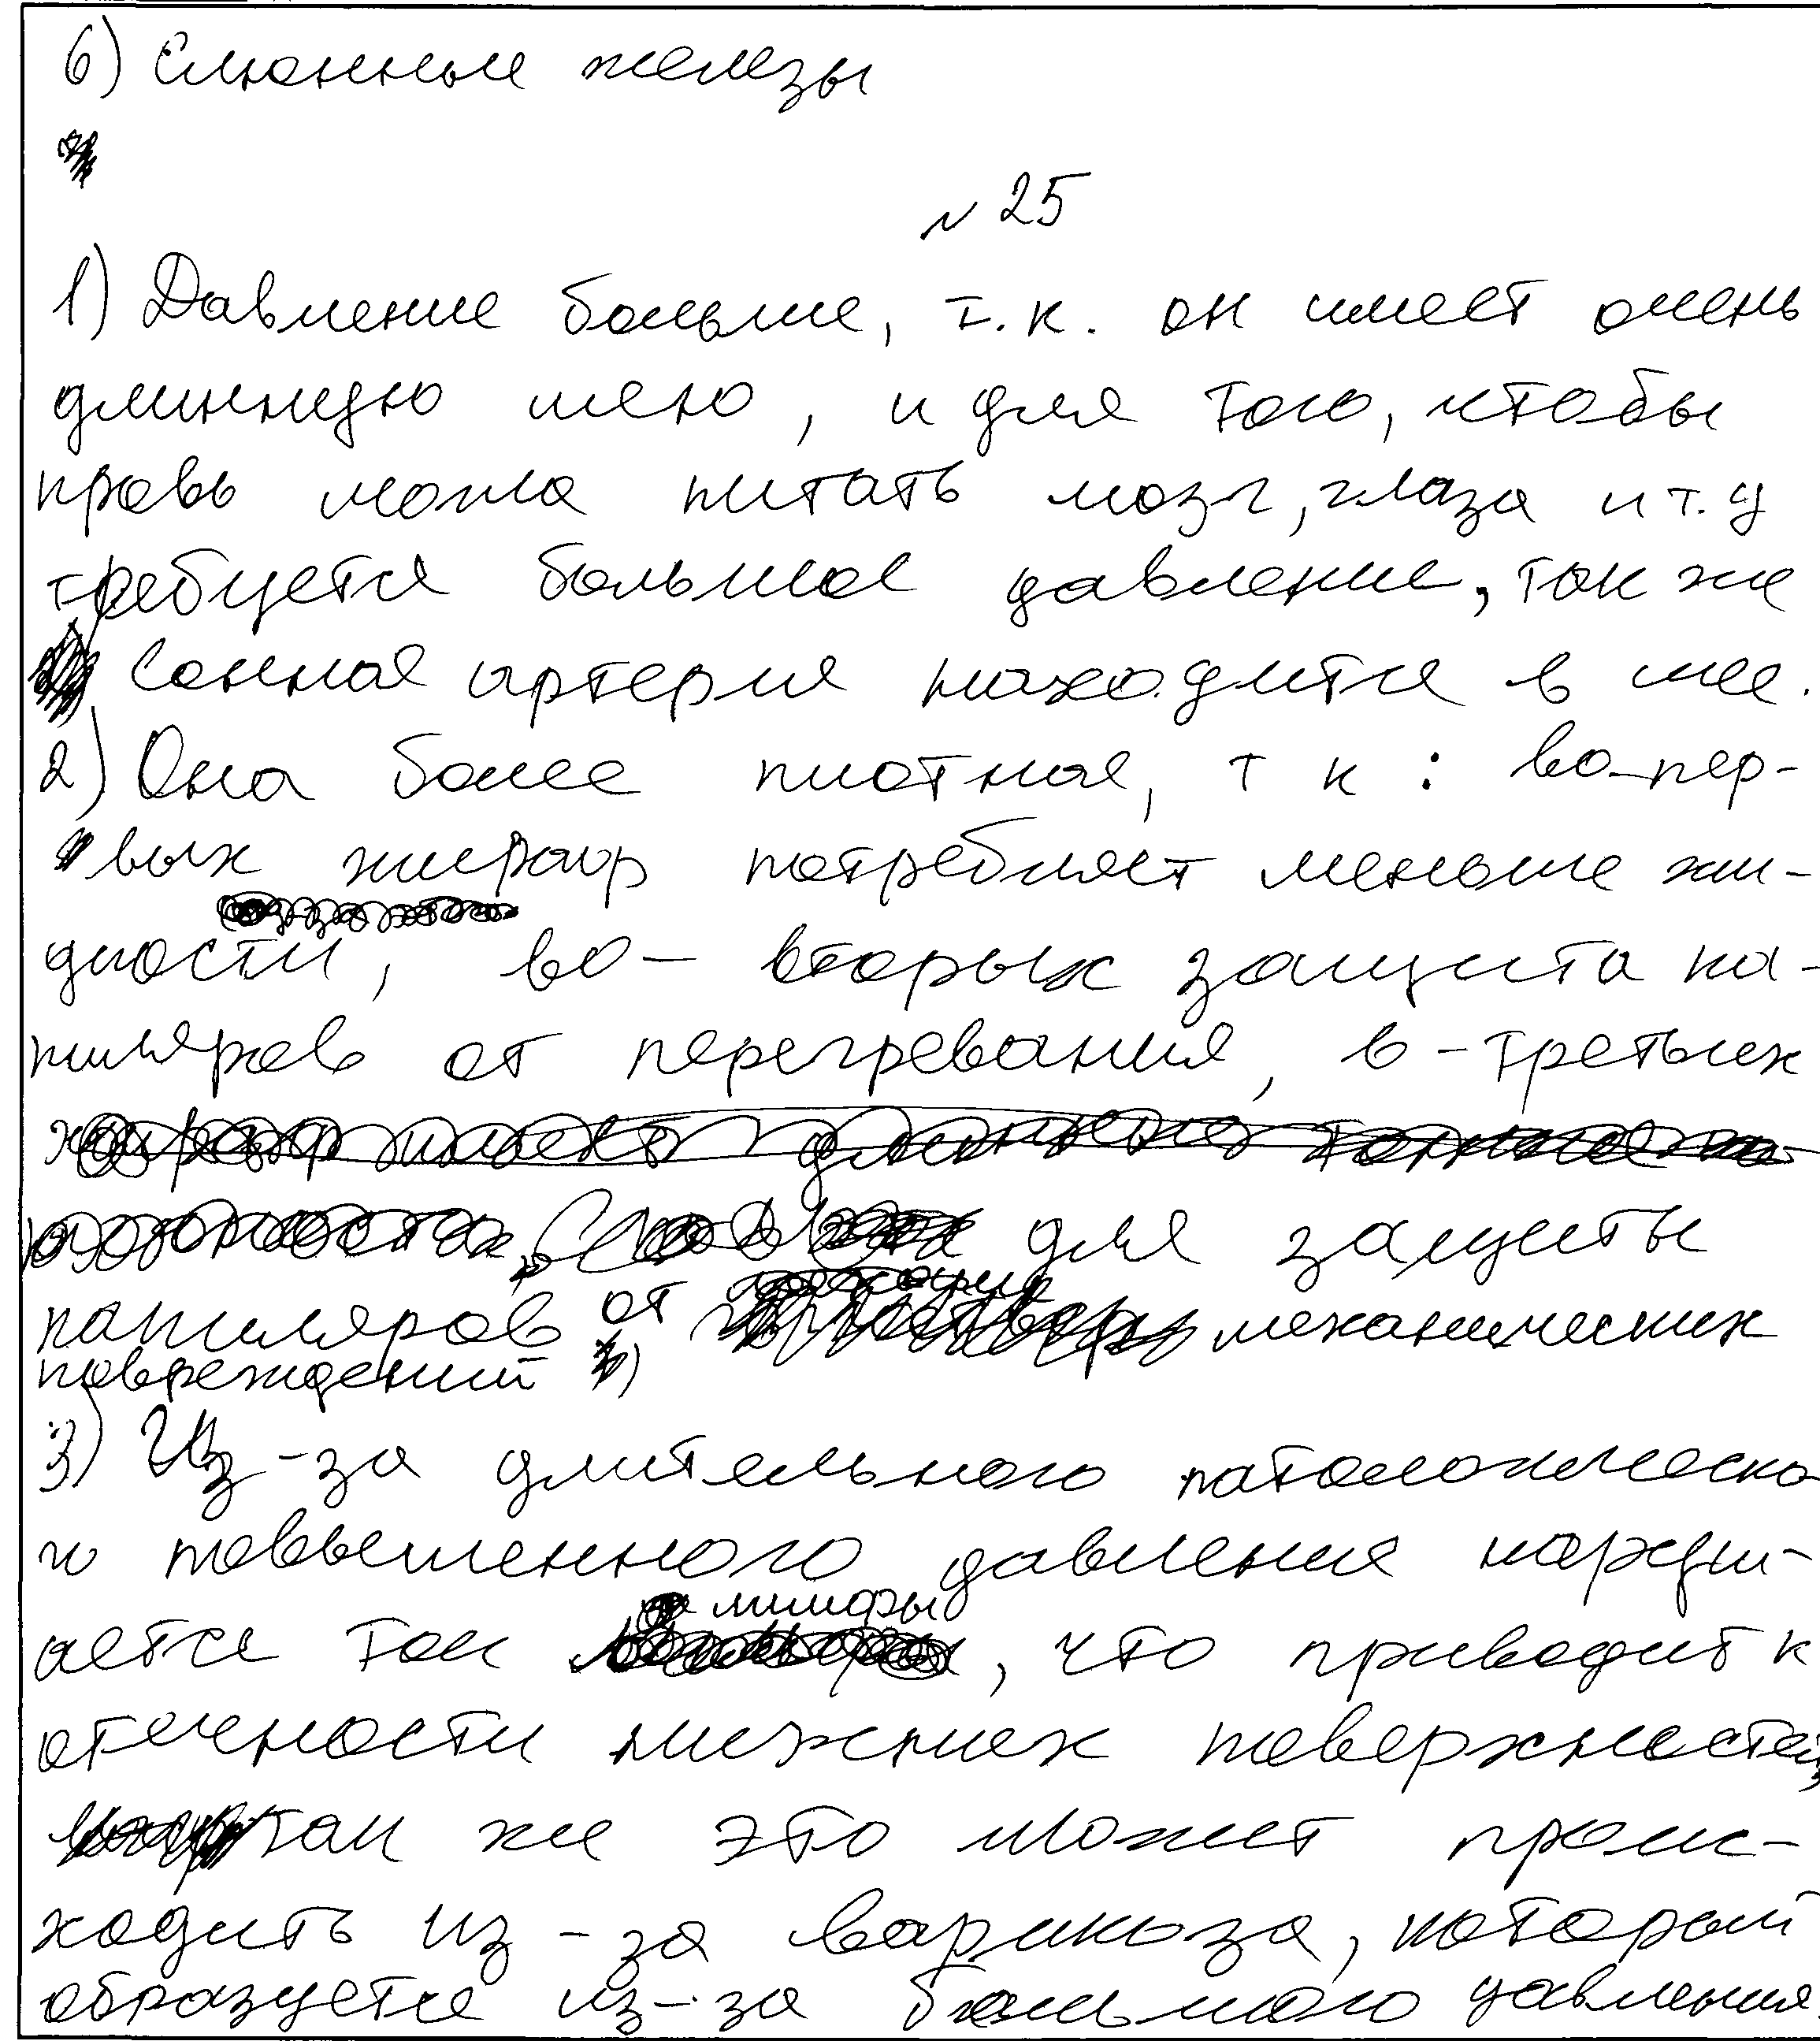 6) Слюнные железы
№ 25
1) Давление больше, т.к. он имеет очень
длинную шею, и для того, чтобы
кровь могла питать мозг, глаза и т.д
требуется большое давление, так же
Сонная артерия находится в шее.
2) Она более плотная, т к : во-пер-
вых жираф потребляет меньше жи-
дкости, во-вторых защита ка-
пиляров от перегревания, в-третьих
для защиты
капиляров от механических
повреждений
3) Из-за длительного патологическо
го повышенного давления наруш-
ается ток лимфы, что приводит к
отечности нижних поверхностей,
так же это может проис-
ходить из-за варикоза, который
образуется из-за большого давления